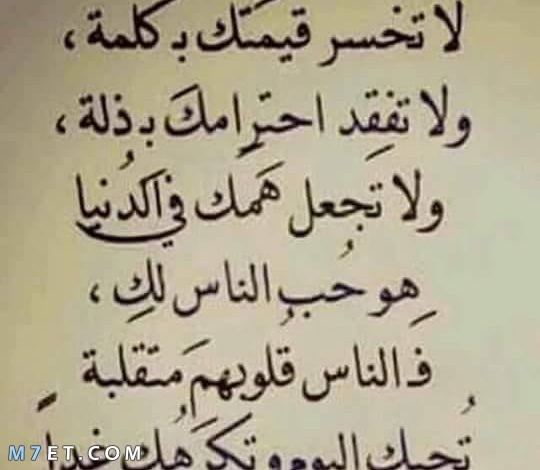 لا تخسر قيمتك بـ كلمة ،
ولا تفقد احترامك بـ ذلة ،
ولا تجعل همك في الدنيا
هو حب الناس لك ،
فـ الناس قلوبهم متقلبة
تحبك اليوم و تكرهك غداً
M7ET.COM